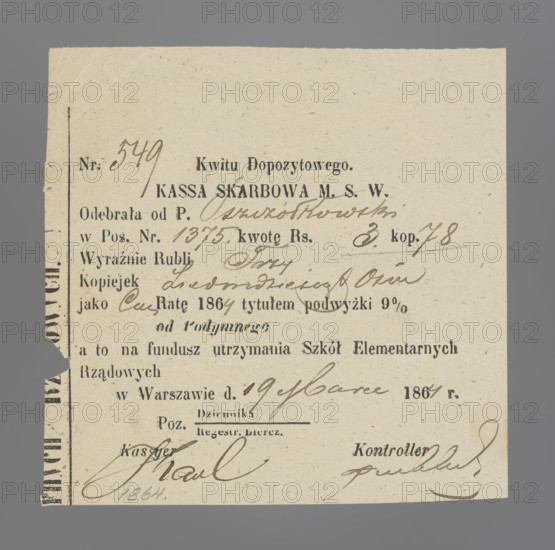 Nr. 549 Kwitu Dopozytowego.
KASSA SKARBOWA M. S. W.
Odebrała od P. Pszczółkowski
w Pos. Nr. 1375. kwotę Rs. 3 kop. 78
Wyraźnie Rubli Trzy
Kopiejek Siedmdziesiąt Ośm
jako Ratę 1864 tytułem podwyżki 9%
od Podymnego
a to na fundusz utrzymania Szkół Elementarnych
Rządowych
w Warszawie d. 19 Marca 1864 r.
Poz. Dziennika
Regestr. biercz.
Kassyer Kontroller
1864.
PHOTO 12